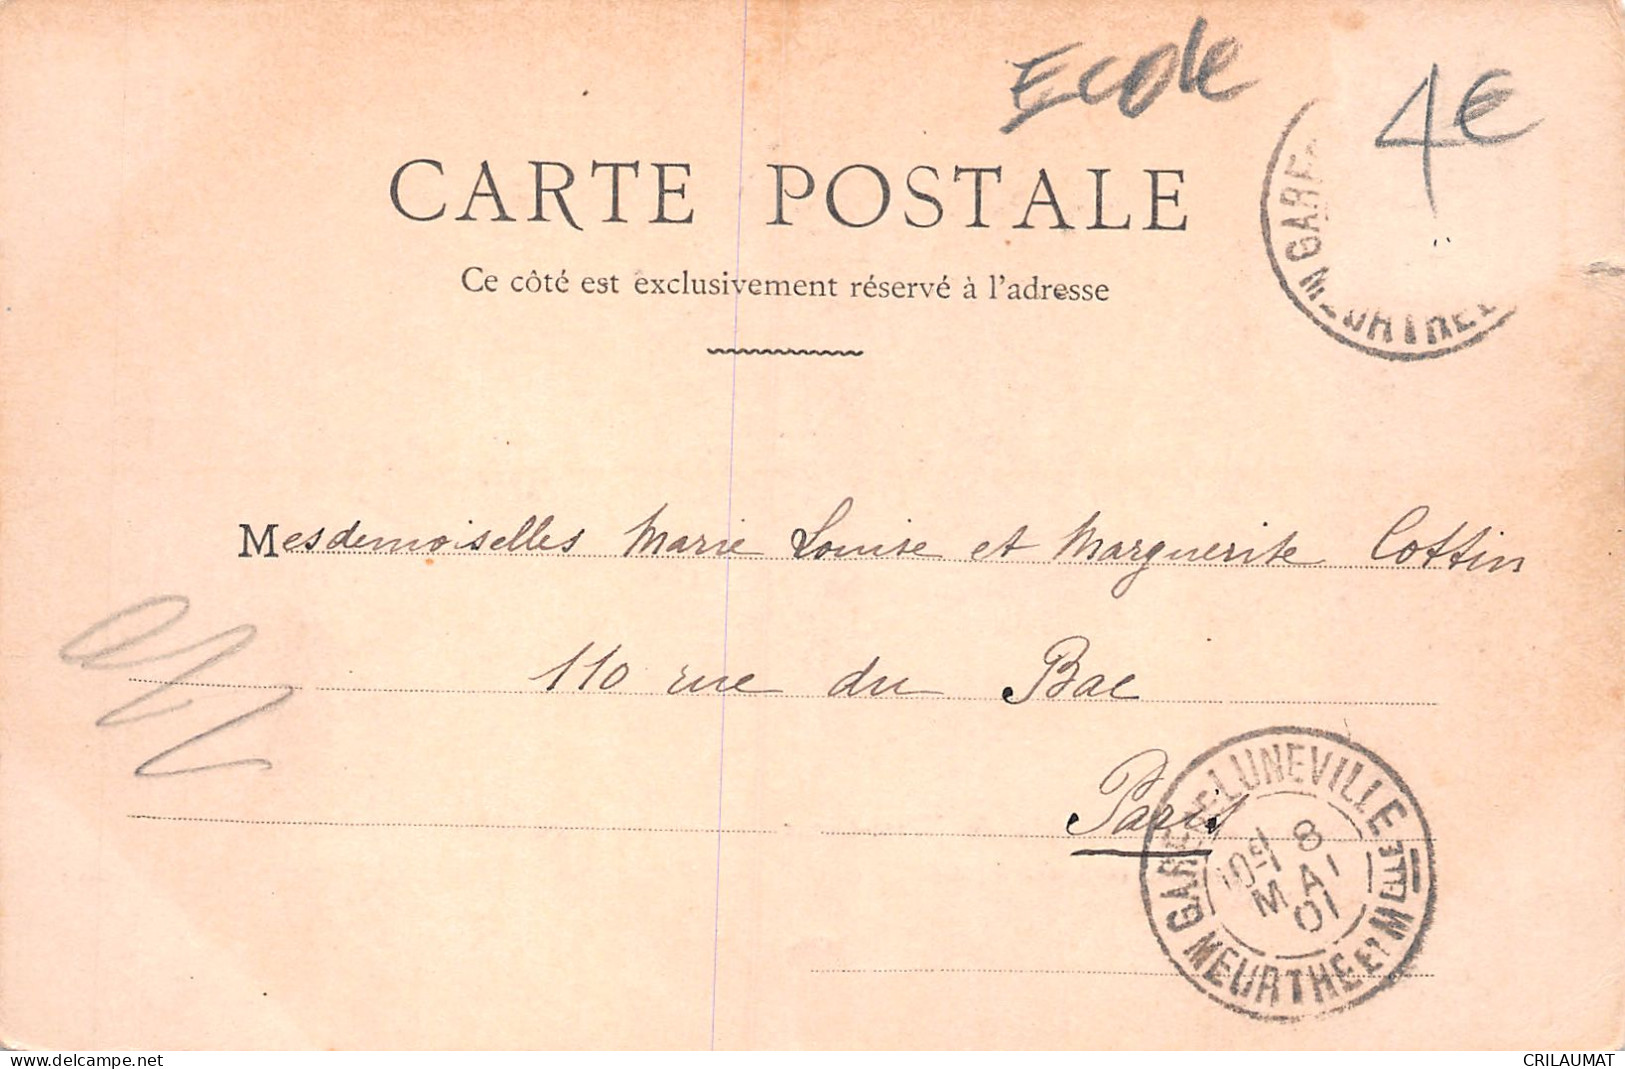 Ecole
4€
CARTE POSTALE
Ce côté est exclusivement réservé à l'adresse
GARE
MEURTHE E
Mesdemoiselles Marie Louise et Marguerite Cottin
110 rue du Bac
Paris
GARE DE LUNEVILLE
8
MAI
01
MEURTHE ET Mlle
delcampe.net
CRILAUMAT